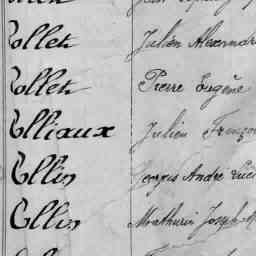 Collet Julien Alexandre
Collet Pierre Eugène
Colliaux Julien François
Collin Georges André
Collin Mathurin Joseph